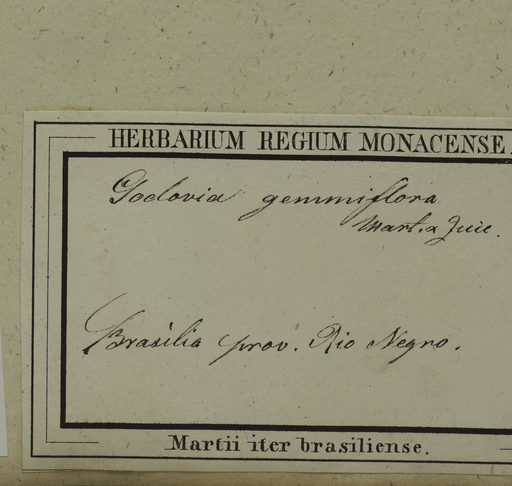 HERBARIUM REGIUM MONACENSE.
Godovia gemmiflora
Mart. & Zucc.
Brasilia prov. Rio Negro.
Martii iter brasiliense.